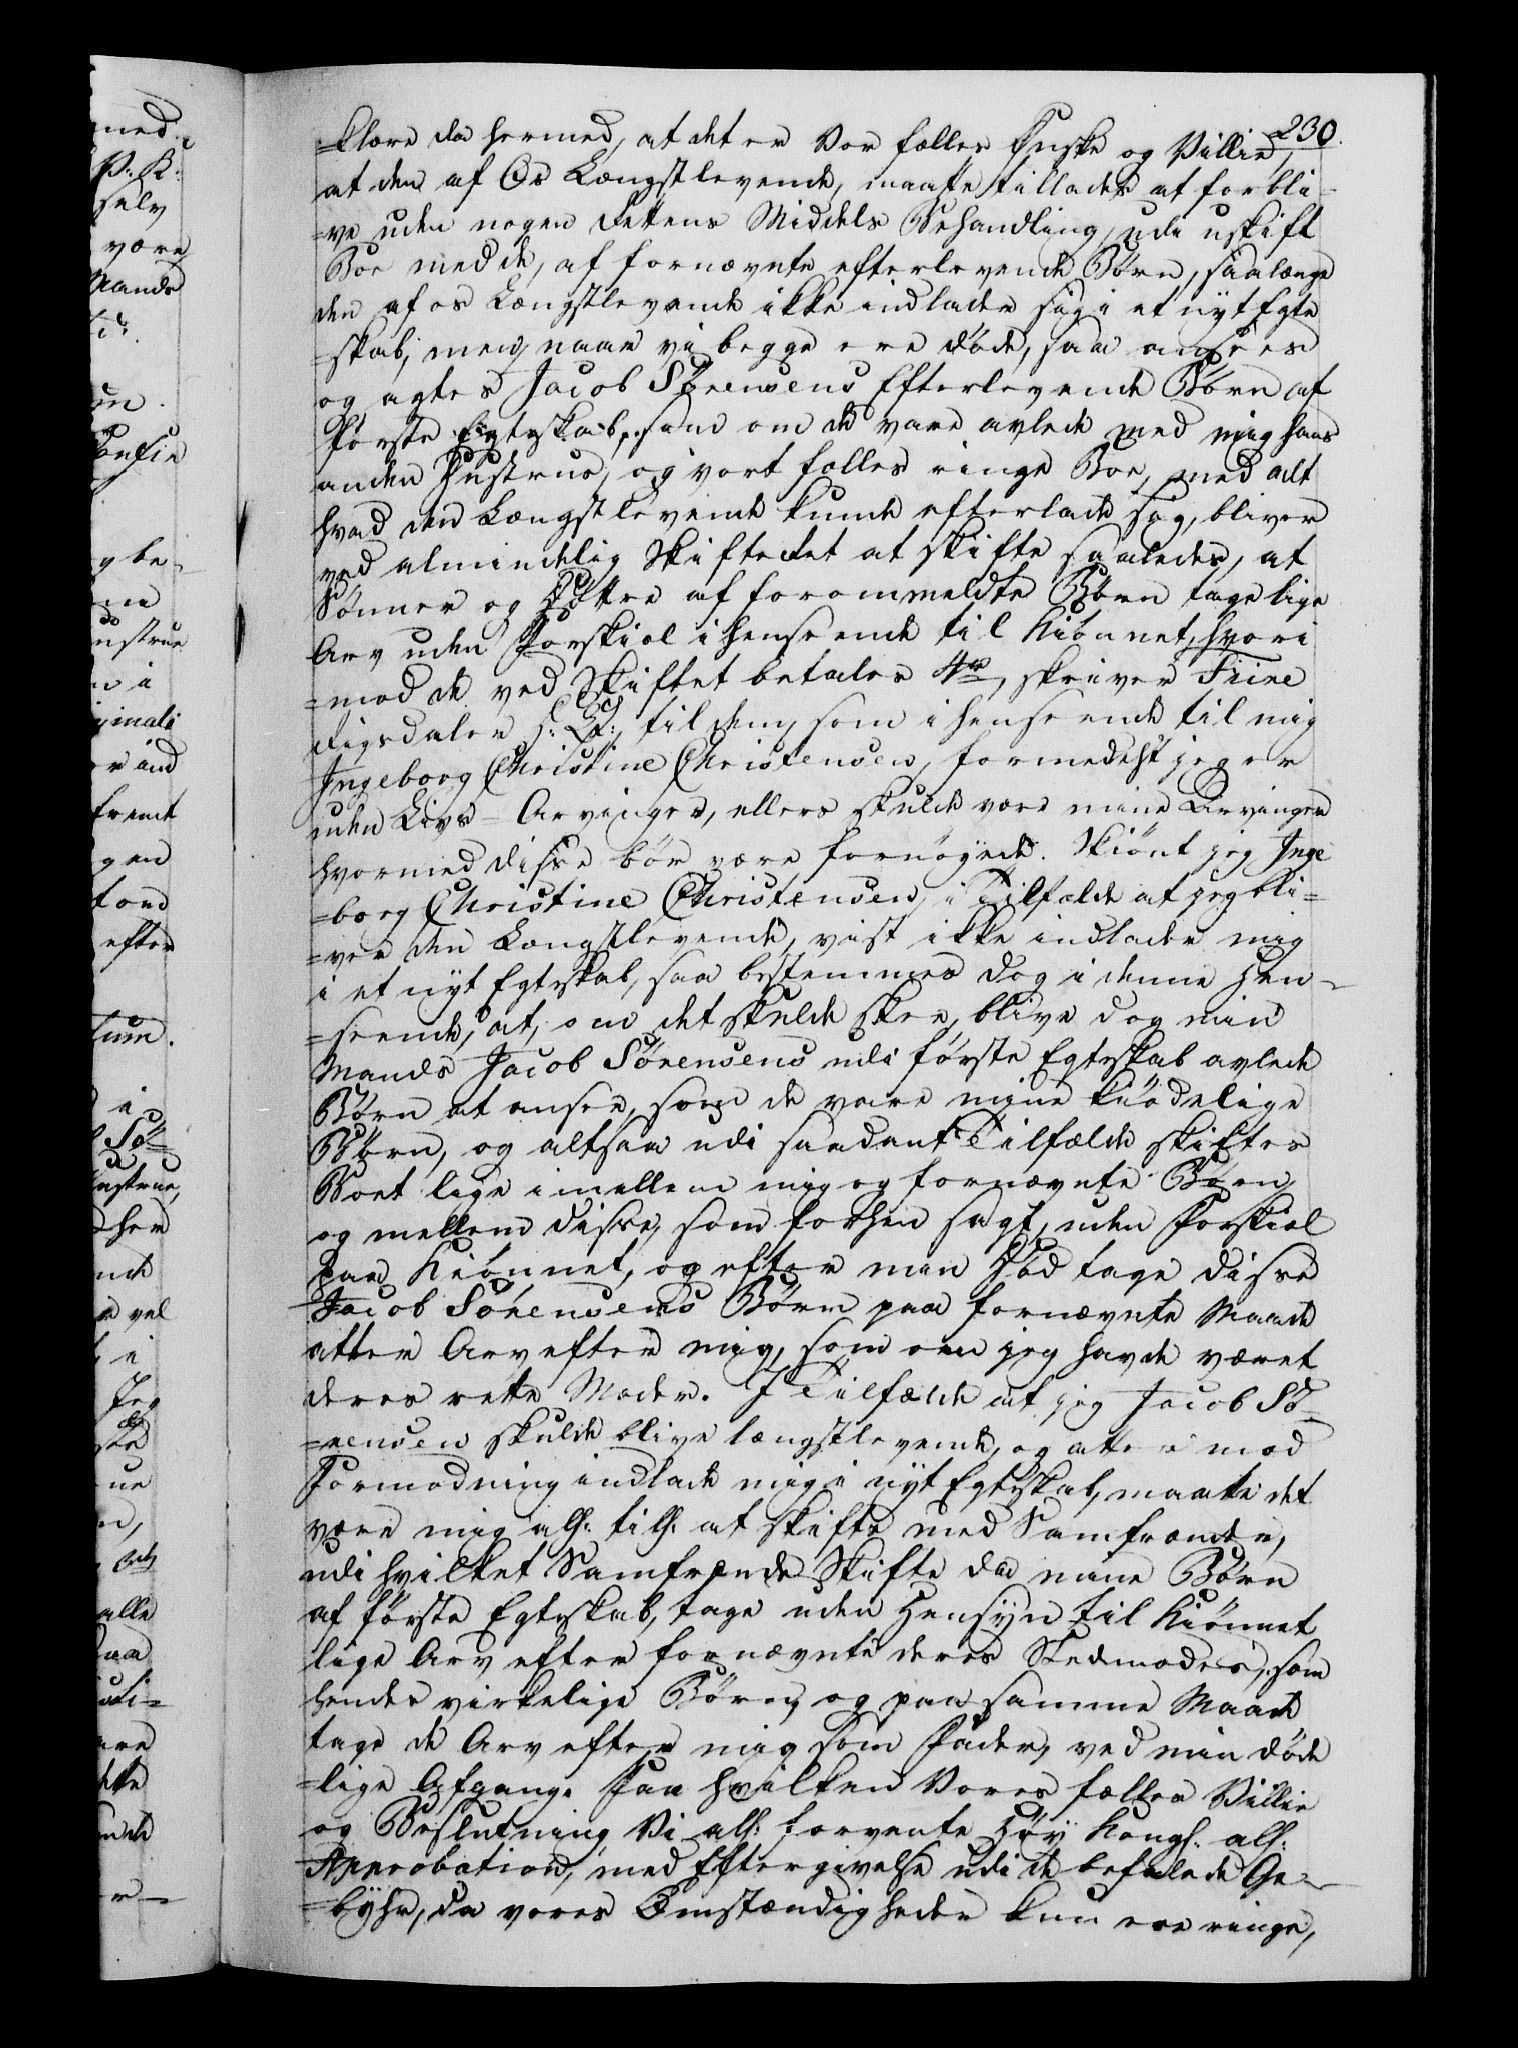 230.
=klare da hermed, at det er Vor fælles Ønske og Villie,
at den af Os Længstlevende, maatte tillades at forbli-
=ve uden nogen Rettens Middels Behandling, udi uskift
Boe med de, af fornævnte efterlevende Børn, saalænge
den af os Længstlevende ikke indlader sig i et nyt Egte
=skab, men, naar vi begge ere døde, saa ansees
og agtes Jacob Sørensens Efterlevende Børn af
første Egteskab, som om de vare avlede med mig hans
anden Hustrue, og vort fælles ringe Boe, med alt
hvad den Længstlevende kunde efterlade sig, bliver
ved almindelig Skifteret at skifte saaledes, at
Sønner og Døttre af forommeldte Børn tage lige
Arv uden Forskiæl i henseende til Kiønnet, hvori
=mod de ved Skiftet betaler 4re, skriver Fiire
Rigsdaler til dem, som i henseende til mig
Ingeborg Christine Christensen, formedelst jeg er
uden Livs-Arvinger, ellers skulde være mine Arvinger
hvormed disse bør være fornøyede. Skiønt jeg Inge
=borg Christine Christensen, i Tilfælde at jeg bli=
=ver den Længstlevende, vist ikke indlader mig
i et nyt Egteskab, saa bestemmes dog i denne Hen-
=seende, at, om det skulde skee, blive dog min
Mands Jacob Sørensens udi første Egteskab avlede
Børn at ansee, som de vare mine kiødelige
Børn, og altsaa udi saadant Tilfælde skiftes
Boet lige imellem mig og fornævnte Børn,
og mellem disse, som forhen sagt, uden Forskiæl
paa Kiønnet, og efter min Død tage disse
Jacob Sørensens Børn paa fornævnte Maade
atter Arv efter mig, som om jeg havde været
deres rette Moder. I Tilfælde at jeg Jacob Sø-
=rensen skulde blive længstlevende, og atter imod
Formodning indlade mig i nyt Egteskab, maatte det
være mig all: till: at skifte med Samfrænder,
udi hvilket Samfrænde Skifte da mine Børn
af første Egteskab, tage uden Hensyn til Kiønnet
lige Arv efter fornævnte deres Stedmoder, som
hendes virkelige Børn, og paa samme Maade
tage de Arv efter mig som Fader, ved min døde
=lige Afgang. Paa hvilken Vores fælles Villie
og Beslutning Vi all: forvente Høy Kongl: all:
Approbation, med Eftergivelse udi de befalede Ge-
=byhr, da vores Omstændigheder kun ere ringe,